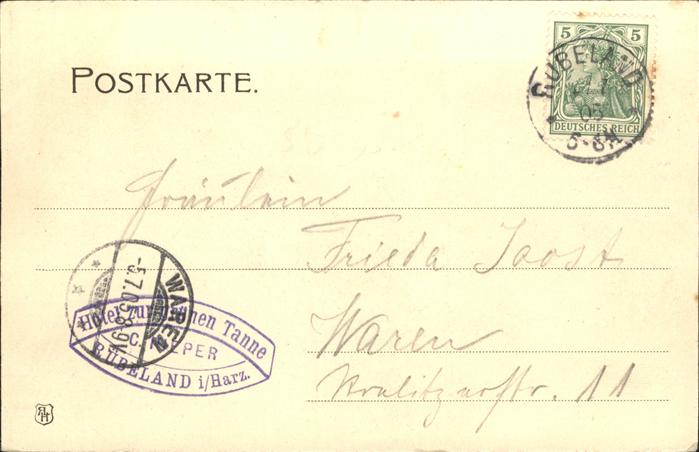 POSTKARTE.
5 5
DEUTSCHES REICH
RÜBELAND
05
5-6N
Fräulein
Frieda Joost
Waren
11
WAREN
-5.7.05.8-9V.
Hotel zur Tanne
C. PER
RÜBELAND i/Harz.